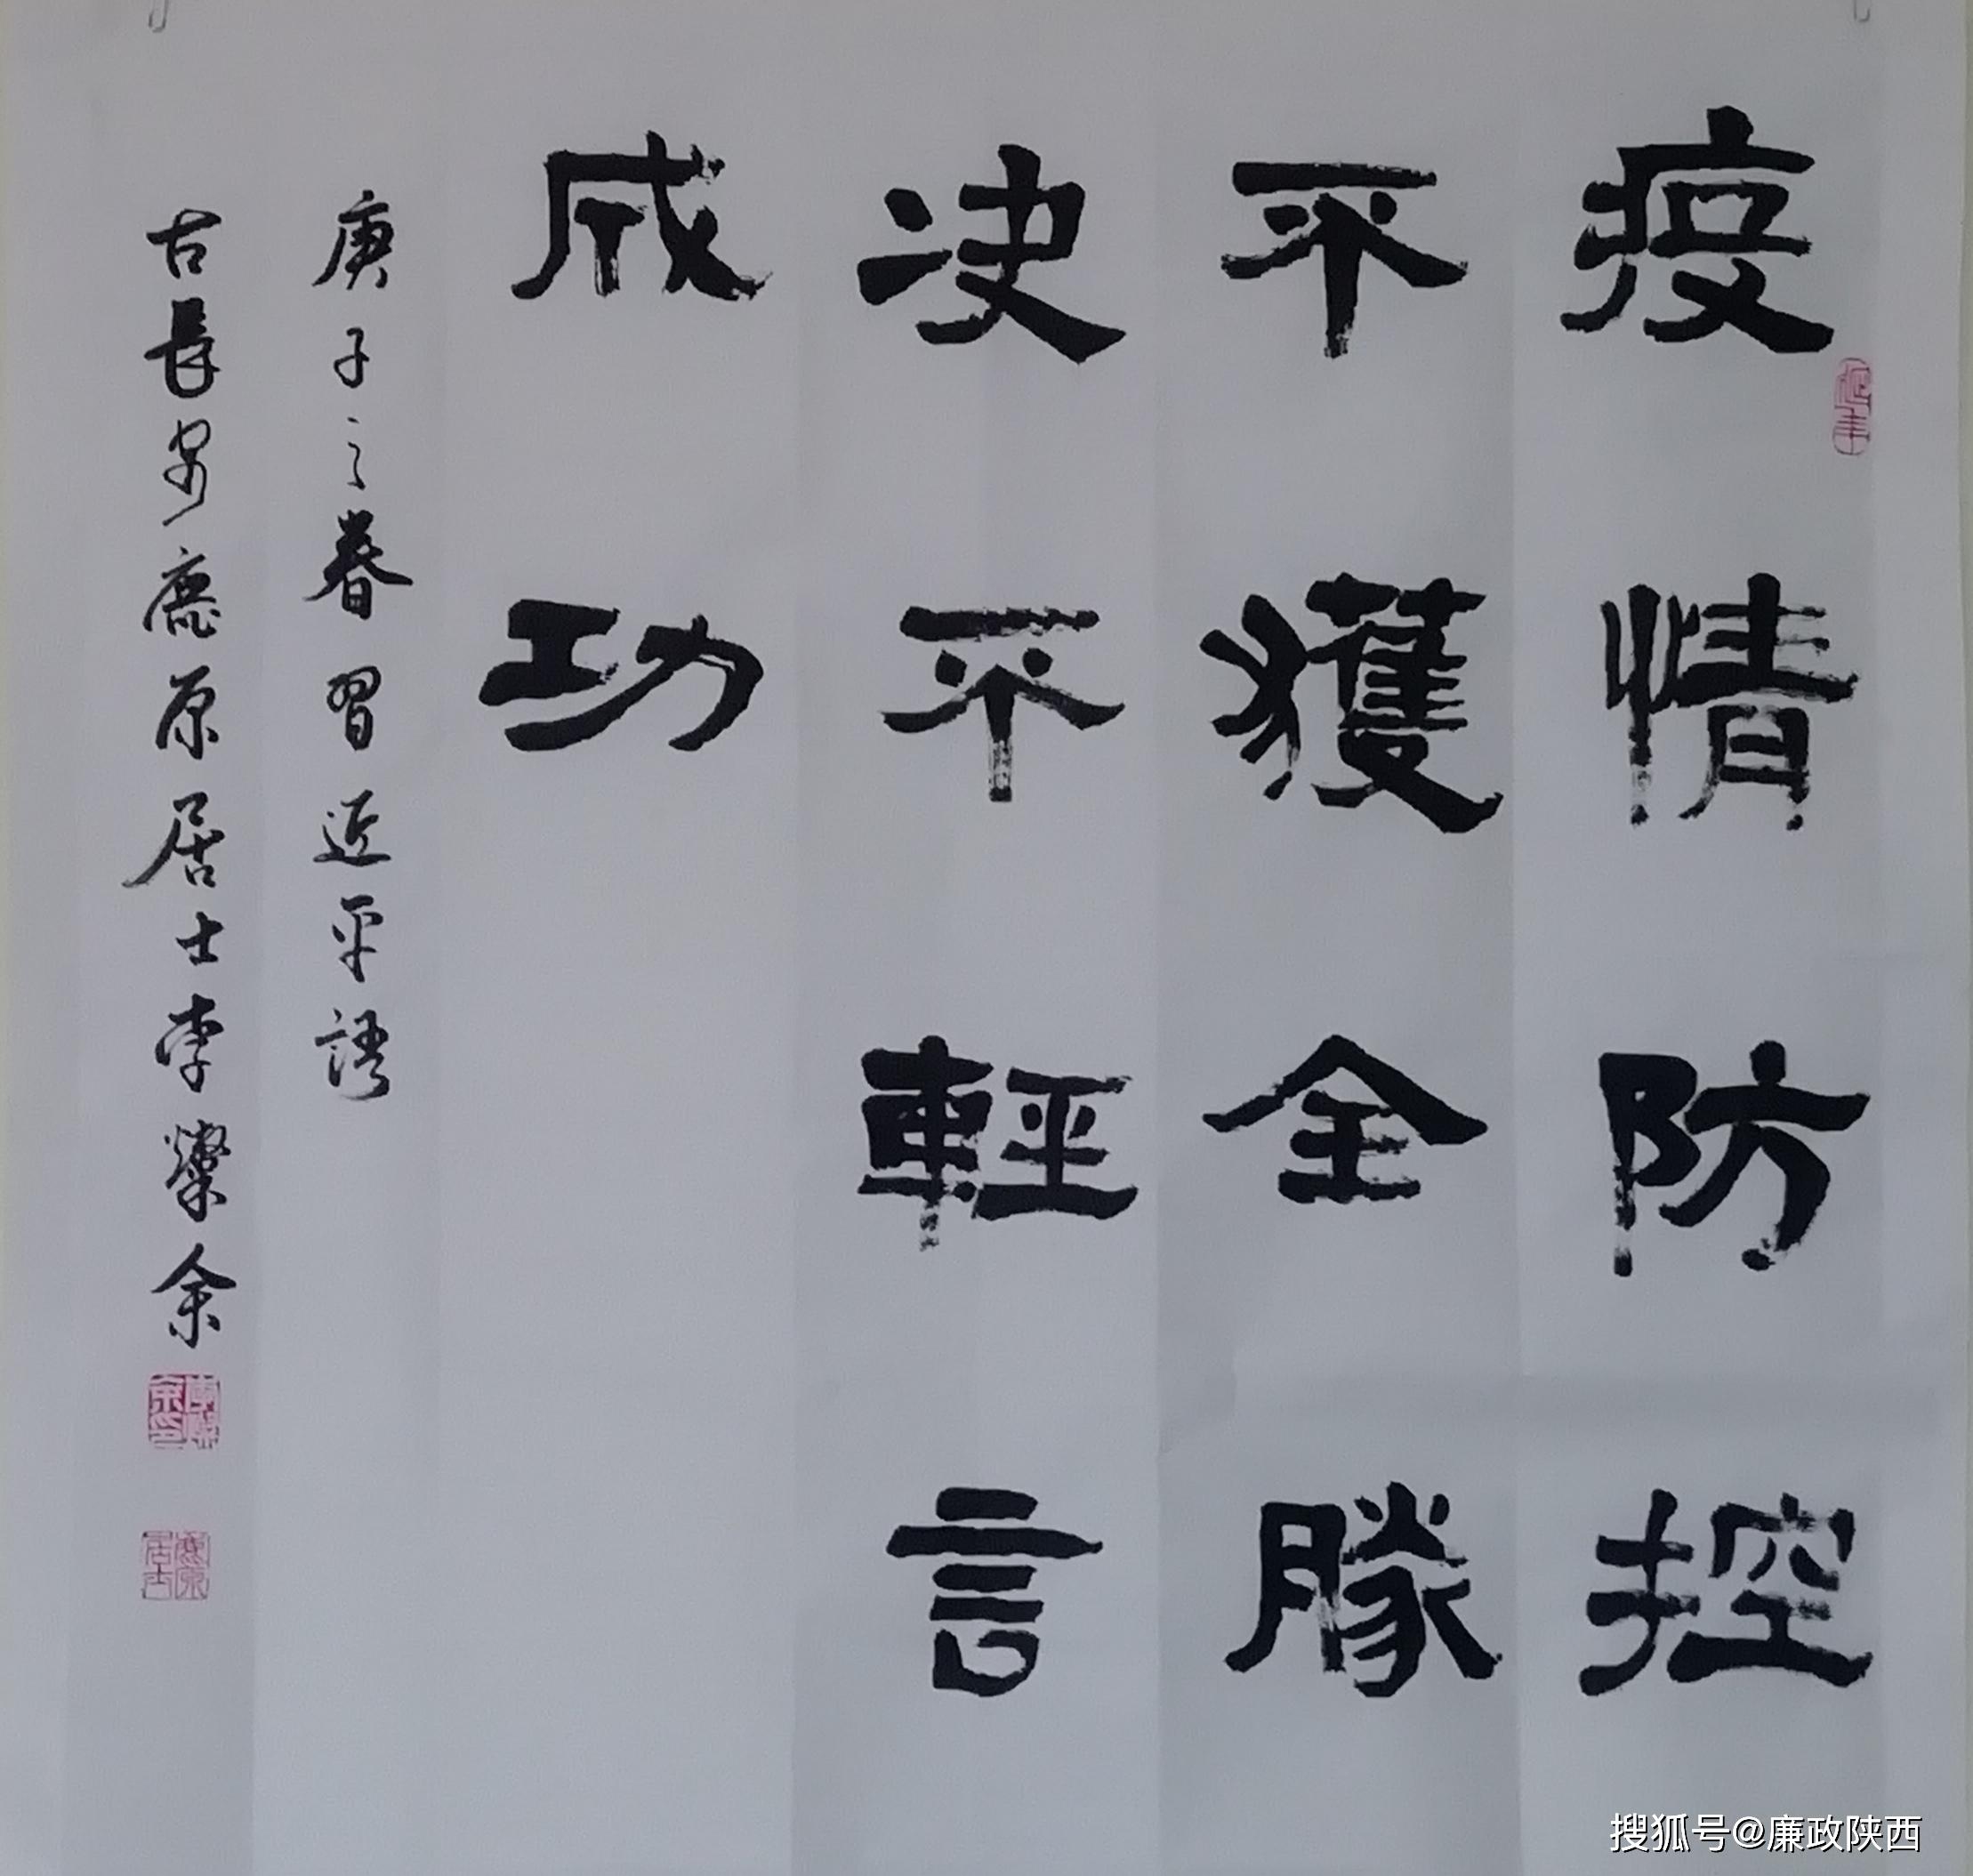 疫情防控
不獲全勝
决不輕言
成功
庚子之春習近平語
古長安鹿原居士李燦余
搜狐号@廉政陕西